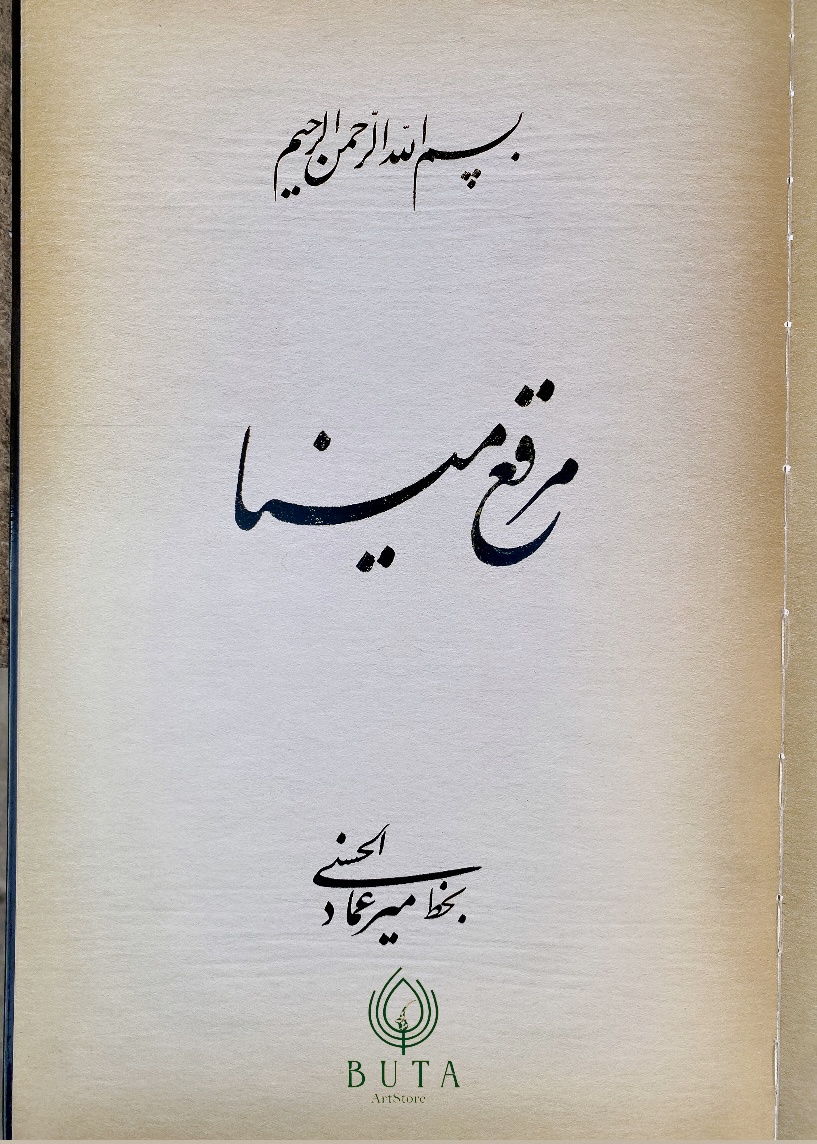 بسم الله الرّحمن الرحیم
مرقع مینا
بخط میرعماد الحسنی
BUTA
ArtStore